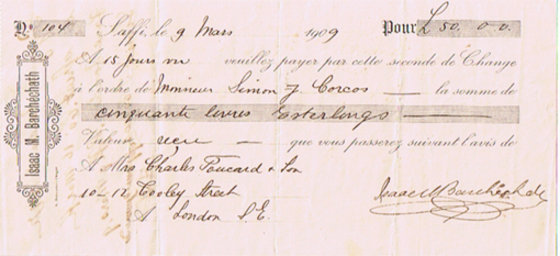 No. 104 Saffi, le 9 Mars 1909 Pour £ 50. 0 0.
A 15 jours vue veuillez payer par cette seconde de Change
à l'ordre de Monsieur Simon J Corcos la somme de
cinquante livres Esterlings
Valeur reçu que vous passerez suivant l'avis de
A Mrs Charles & Son
10-12 Tooley Street
A London S.E.
Isaac M Barchéchath
Isaac M. Barchéchath